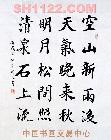 SH1122.COM
空山新雨後
天氣晚来秋
明月松間照
清泉石上流
中国书画交易中心